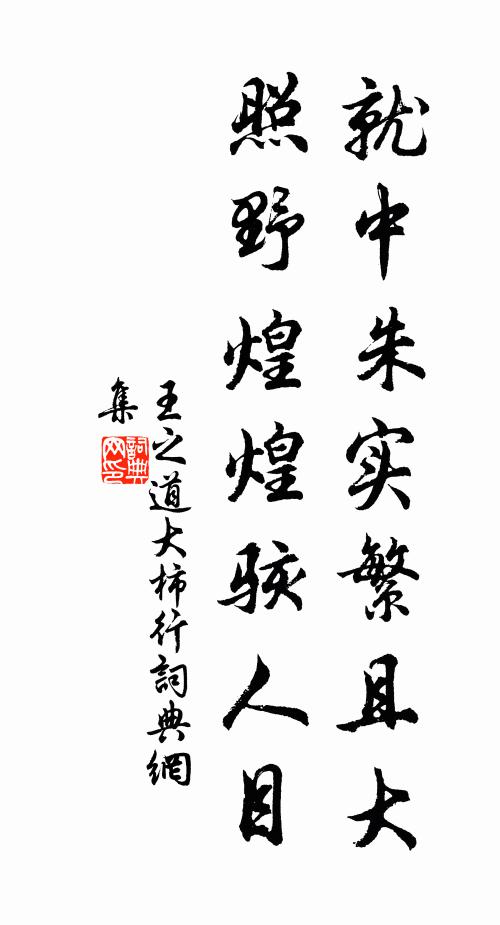 就中朱实繁且大
照野煌煌骇人目
王之道大柿行詞典網
集
詞典
网印